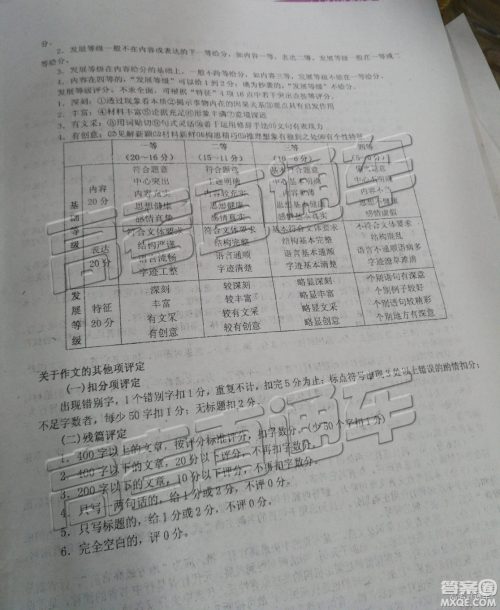 分。
2. 发展等级一般不在内容或表达的下一等给分，如内容一等，表达二等，发展等级一般在一等或二等给分。
3. 发展等级在内容给分的基础上，一般不跨等给分，如内容三等，发展等级一般不在一等给分。
4. 内容在四等的，“发展等级”可以给1到2分，确为抄袭的，“发展等级”不给分。
发展等级评分，不求全面，可根据“特征”4项16点中若干突出点按等评分。
1. 深刻：①透过现象看本质②揭示事物内在的因果关系③观点具有启发作用
2. 丰富：④材料丰富⑤论据充足⑥形象丰满⑦意境深远
3. 有文采：⑧用词贴切⑨句式灵活⑩善于运用修辞手法⑪文句有表现力
4. 有创意：⑫见解新颖⑬材料新鲜⑭构思精巧⑮推理想象有独到之处⑯有个性特征
一等 二等 三等 四等
(20－16分) (15－11分) (10－6分) (5－0分)
基础等级
内容 20分
符合题意 符合题意 基本符合题意 偏离题意
中心突出 主题明确 中心基本明确
内容充实 内容较充实
思想健康 思想健康 思想基本健康 思想不健康
感情真挚 感情真实 感情基本真实 感情虚假
表达 20分
符合文体要求 符合文体要求 基本符合文体要求 不符合文体要求
结构严谨 结构完整 结构基本完整 结构混乱
语言流畅 语言通顺 语言基本通顺 语言不通顺语病多
字迹工整 字迹清楚 字迹基本清楚 字迹潦草难辨
发展等级
特征 20分
深刻 较深刻 略显深刻 个别语句有深意
丰富 较丰富 略显丰富 个别例子较好
有文采 较有文采 略显文采 个别语句较精彩
有创意 较有创意 略显创意 个别地方有深意
关于作文的其他项评定
(一)扣分项评定
出现错别字，1个错别字扣1分，重复不计，扣完5分为止；标点符号出现3处以上错误的酌情扣分；
不足字数者，每少50字扣1分；无标题扣2分。
(二)残篇评定
1. 400字以上的文章，按评分标准评分，扣字数分。(少50个字扣1分)
2. 400字以下的文章，20分以下评分，不再扣字数分。
3. 200字以下的文章，10分以下评分，不再扣字数分。
4. 只写一两句话的，给1分或2分，不评0分。
5. 只写标题的，给1分或2分，不评0分。
6. 完全空白的，评0分。
高考直通车
高考直通车
高考直通车
答案圈
MXQE.COM